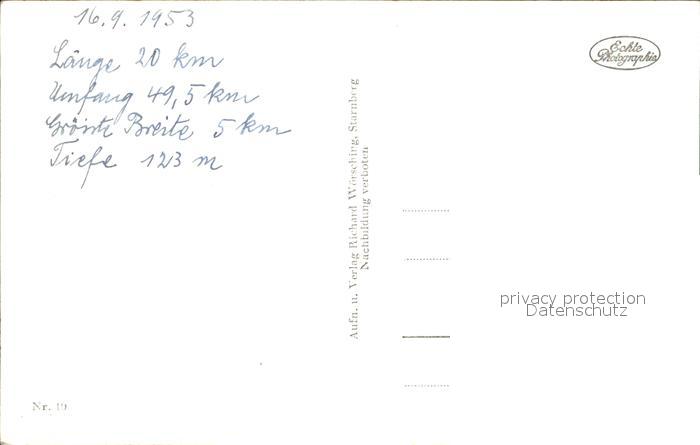 16.9. 1953
Länge 20 km
Umfang 49,5 km
Größte Breite 5 km
Tiefe 123 m
Echte
Photographie
Aufn. u. Verlag Richard Wörsching, Starnberg
Nachbildung verboten
privacy protection
Datenschutz
Nr. 19